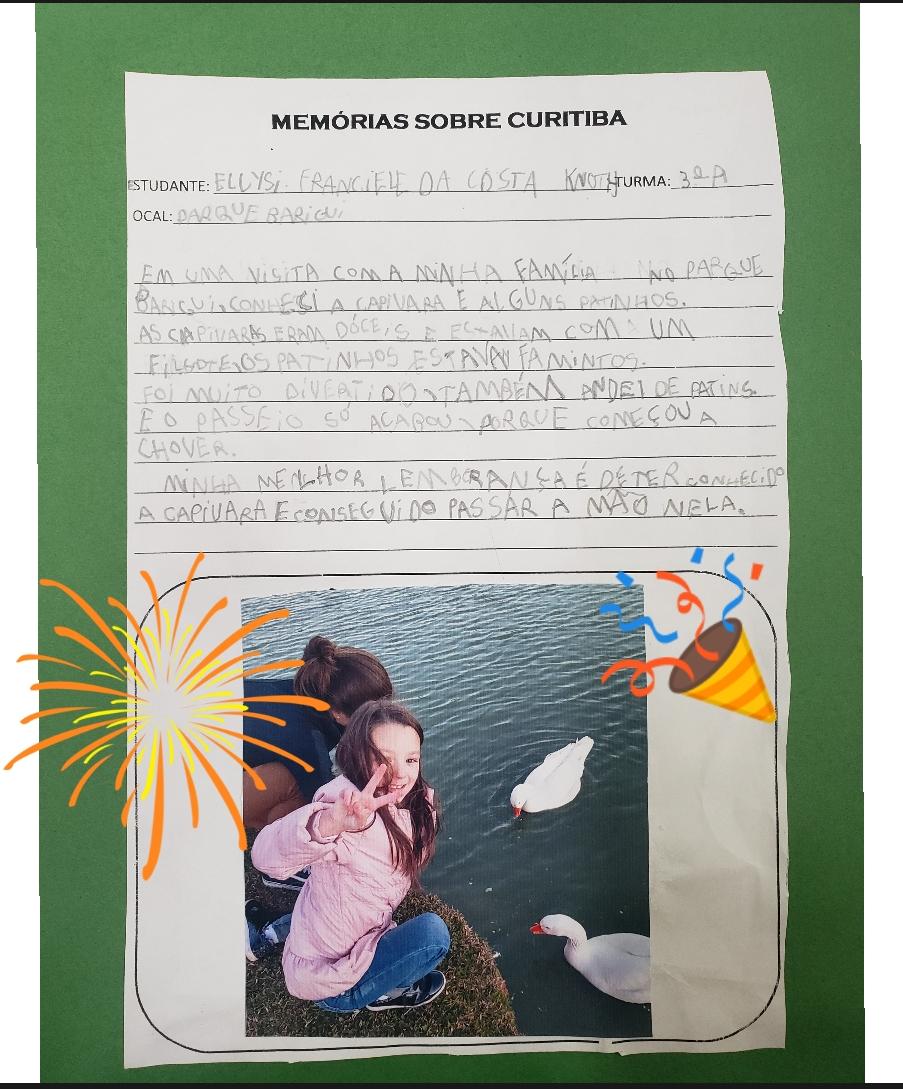 MEMÓRIAS SOBRE CURITIBA
ESTUDANTE: ELLYSI. FRANCIELE DA COSTA KNOTH TURMA: 3ºA
OCAL: PARQUE BARIGUI
EM UMA VISITA COM A MINHA FAMÍLIA NO PARQUE
BARIGUI, CONHECI A CAPIVARA E ALGUNS PATINHOS.
AS CAPIVARAS ERAM DÓCEIS E ESTAVAM COM UM
FILHOTE, OS PATINHOS ESTAVAM FAMINTOS.
FOI MUITO DIVERTIDO, TAMBÉM ANDEI DE PATINS
E O PASSEIO SÓ ACABOU, PORQUE COMEÇOU A
CHOVER.
MINHA MELHOR LEMBRANÇA É DE TER CONHECIDO
A CAPIVARA E CONSEGUIDO PASSAR A MÃO NELA.